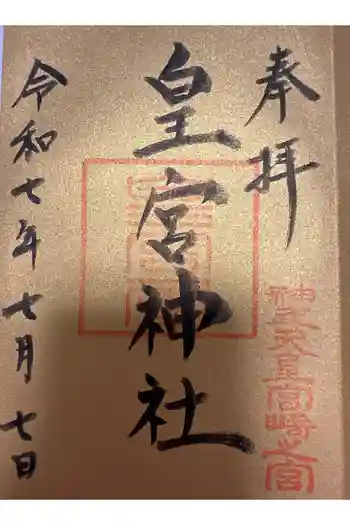 奉拝
皇宮神社
令和七年七月七日
神武天皇宮崎之宮